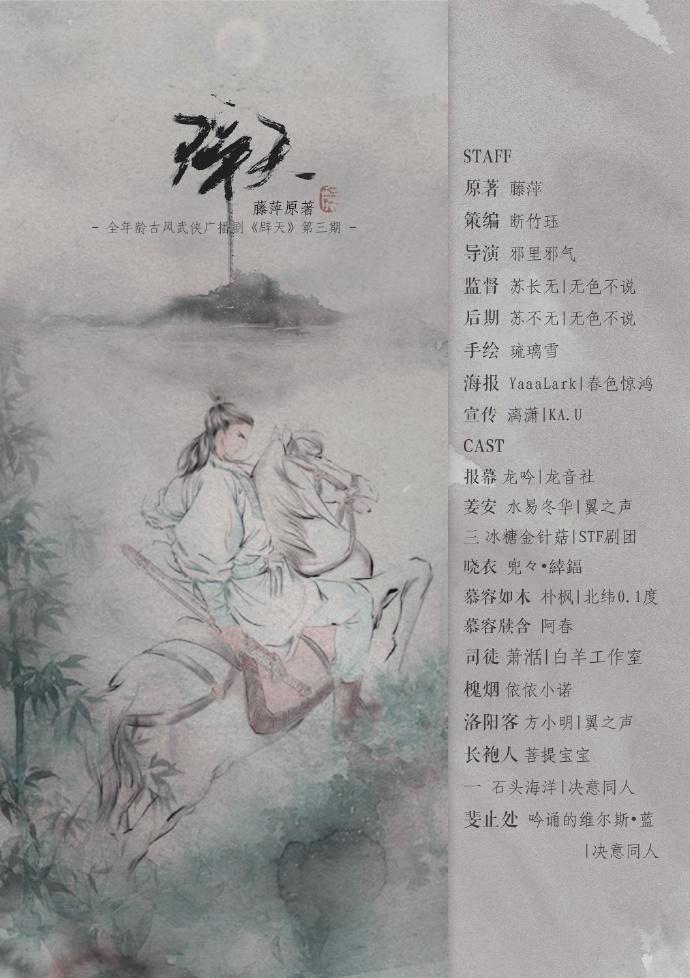 辟天
藤萍原著
- 全年龄古风武侠广播剧《辟天》第三期 -
STAFF
原著 藤萍
策编 断竹珏
导演 邪里邪气
监督 苏长无|无色不说
后期 苏不无|无色不说
手绘 琉璃雪
海报 YaaaLark|春色惊鸿
宣传 漓潇|KA.U
CAST
报幕 龙吟|龙音社
姜安 水易冬华|翼之声
三 冰糖金针菇|STF剧团
晓衣 兜々•縡鍢
慕容如木 朴枫|北纬0.1度
慕容牍含 阿春
司徒 萧湉|白羊工作室
槐烟 依依小诺
洛阳客 方小明|翼之声
长袍人 菩提宝宝
一 石头海洋|决意同人
斐止处 吟诵的维尔斯•蓝
|决意同人